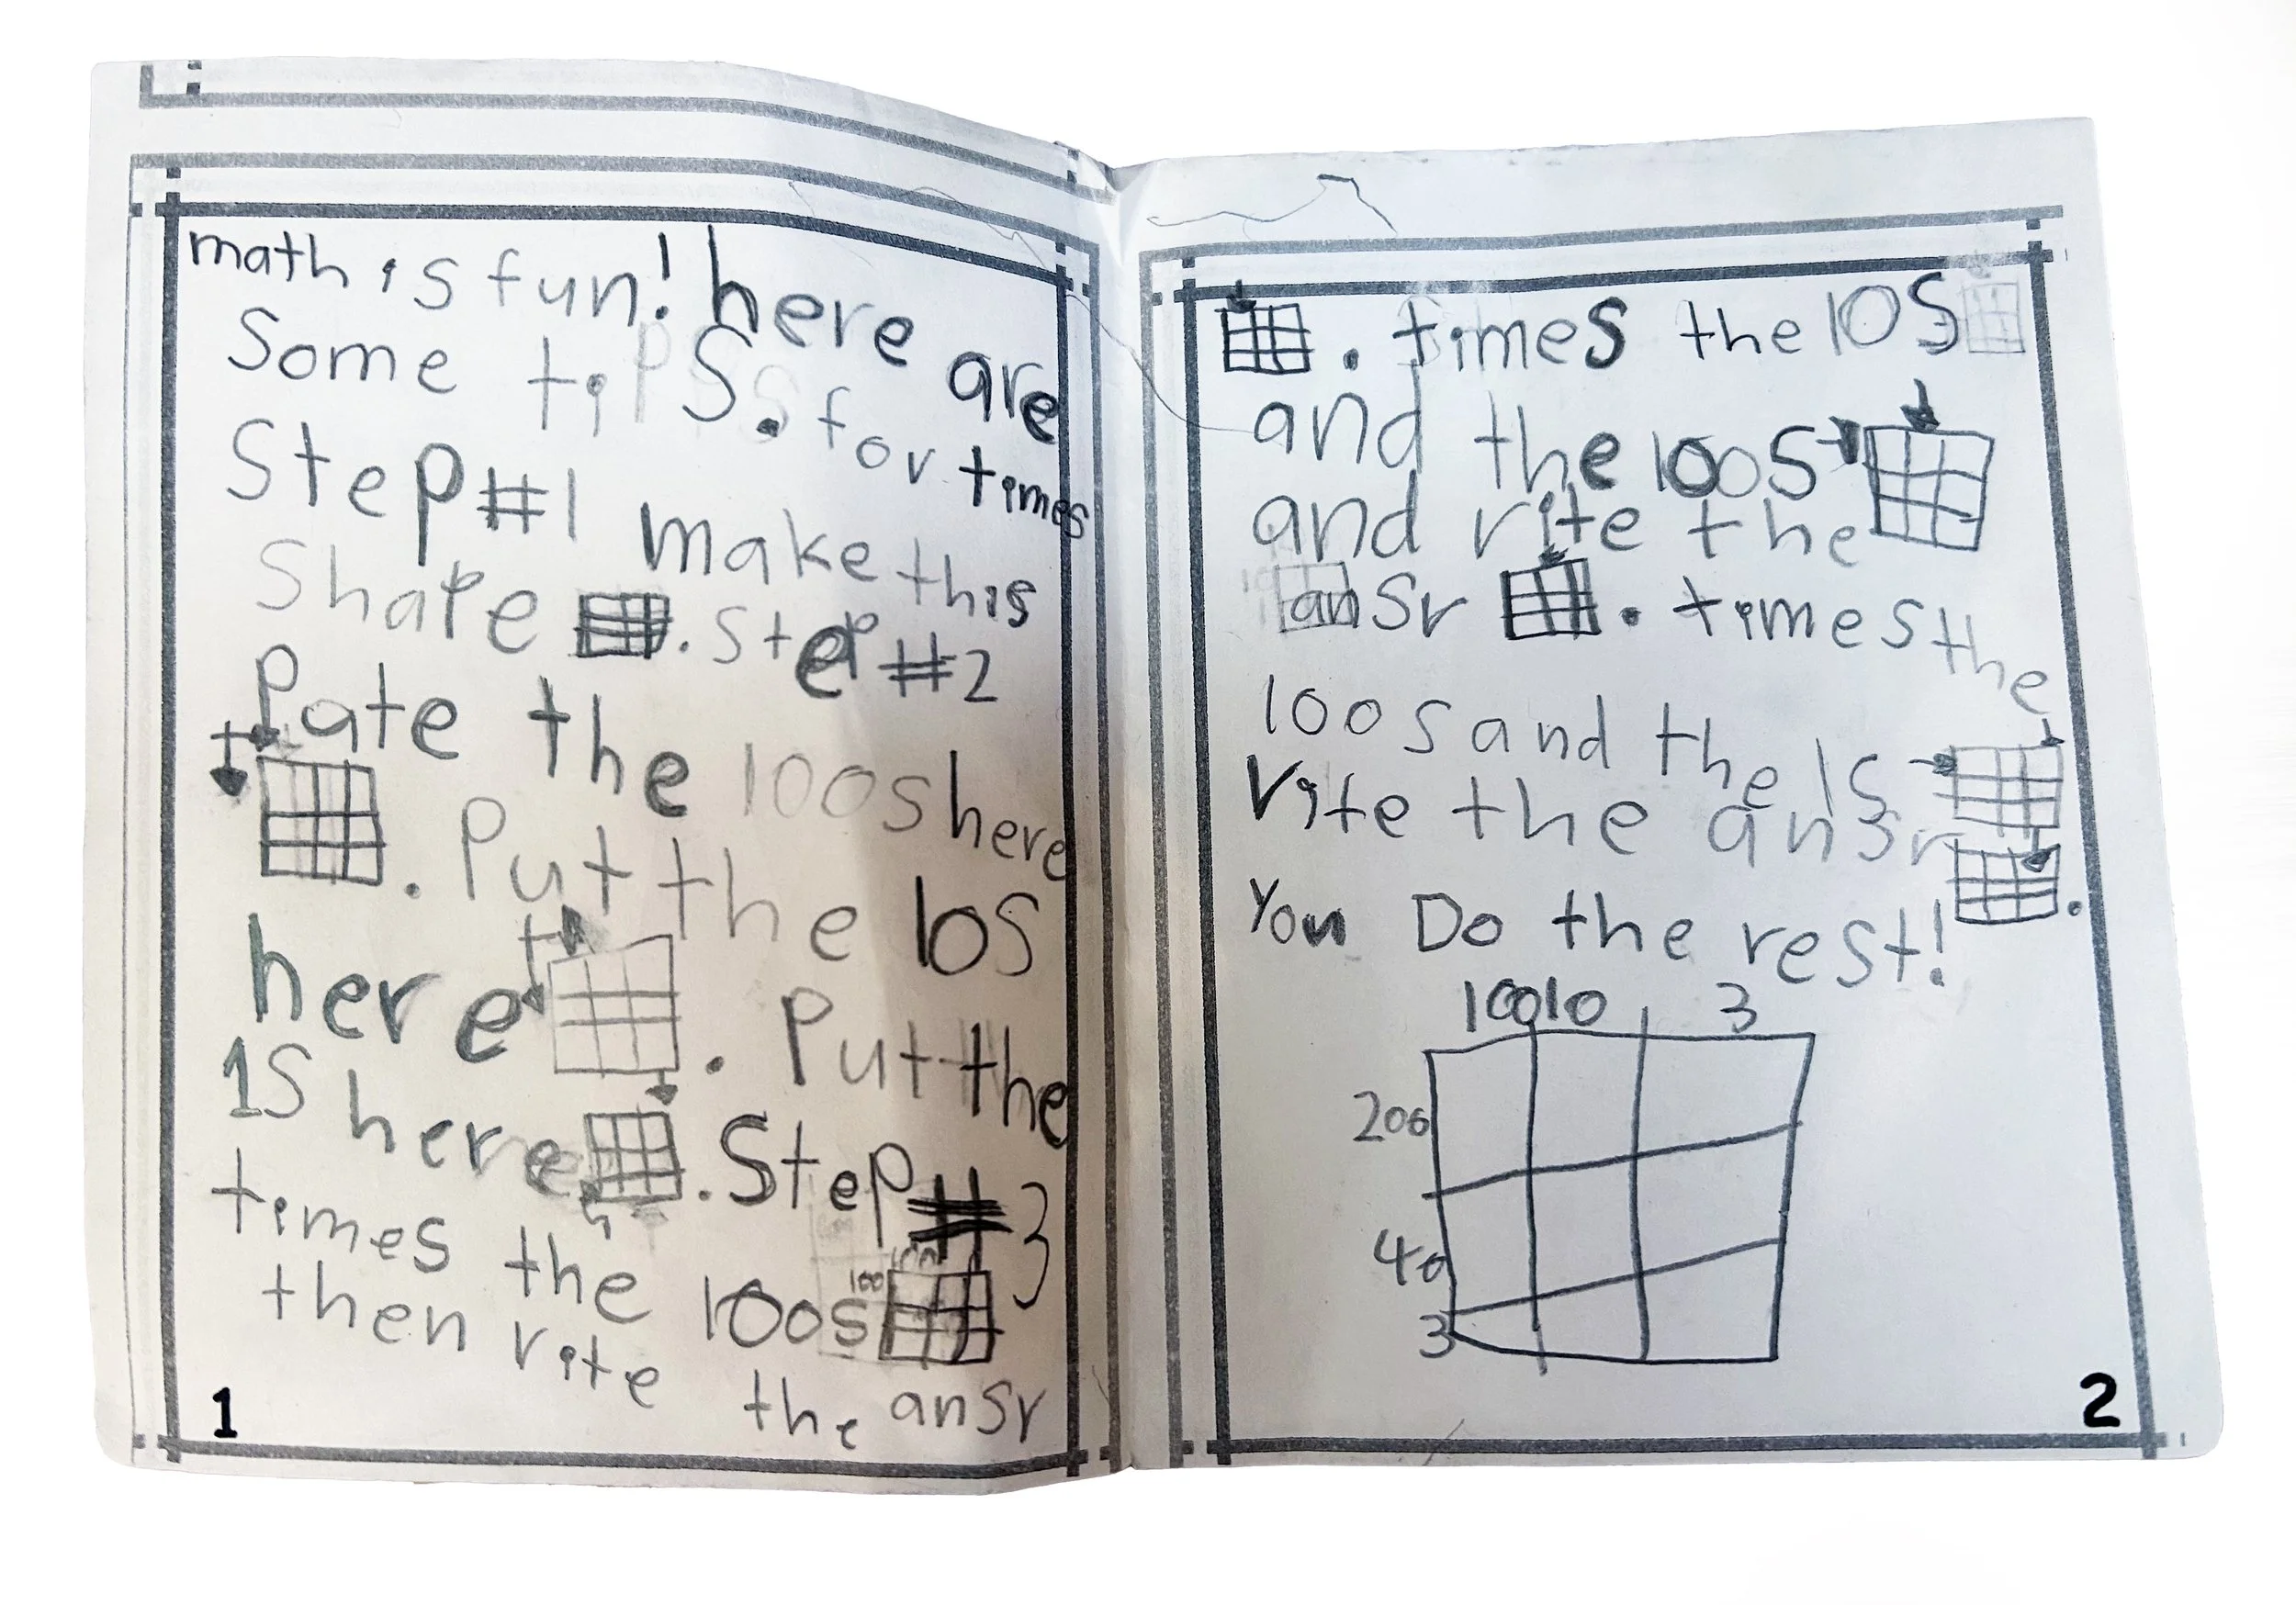 math is fun! here are
Some tips. for times
Step #1 make this
Shape . Step #2
Pate the 100s here
. Put the 10s
here . Put the
1s here . Step #3
times the 100s 100
then rite the ansr
1
. times the 10s
and the 100s
and rite the
ansr . times the
100s and the 1s
rite the ansr .
You Do the rest!
100 10 3
200
40
3
2